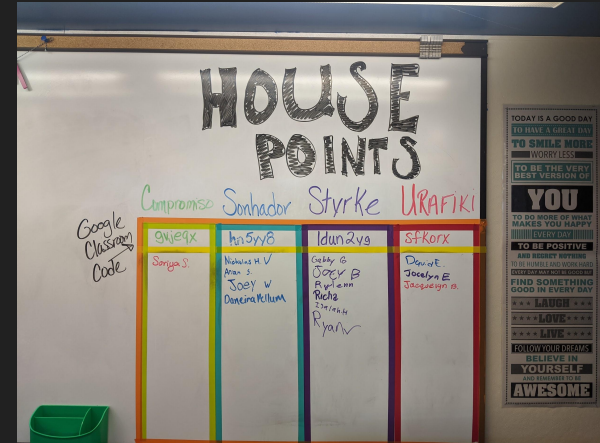 HOUSE
POINTS
Compromiso Sonhador Styrke URAFIKI
Google
Classroom
Code
gwjeqx hn5yy8 1dun2y9 sfkorx
Sonya S.
Nicholas H. V
Arian S.
Joey W
Gabby G
Joey B
Rylenn
Richa
Isaiah H.
Ryan
David E.
Jocelyn E
Jacquelyn B.
TODAY IS A GOOD DAY
TO HAVE A GREAT DAY
TO SMILE MORE
WORRY LESS
TO BE THE VERY
BEST VERSION OF
YOU
TO DO MORE OF WHAT
MAKES YOU HAPPY
EVERY DAY
TO BE POSITIVE
AND REGRET NOTHING
TO BE HUMBLE AND WORK HARD
EVERY DAY MAY NOT BE GOOD BUT
FIND SOMETHING
GOOD IN EVERY DAY
LAUGH
LOVE
LIVE
FOLLOW YOUR DREAMS
BELIEVE IN
YOURSELF
AND REMEMBER TO BE
AWESOME